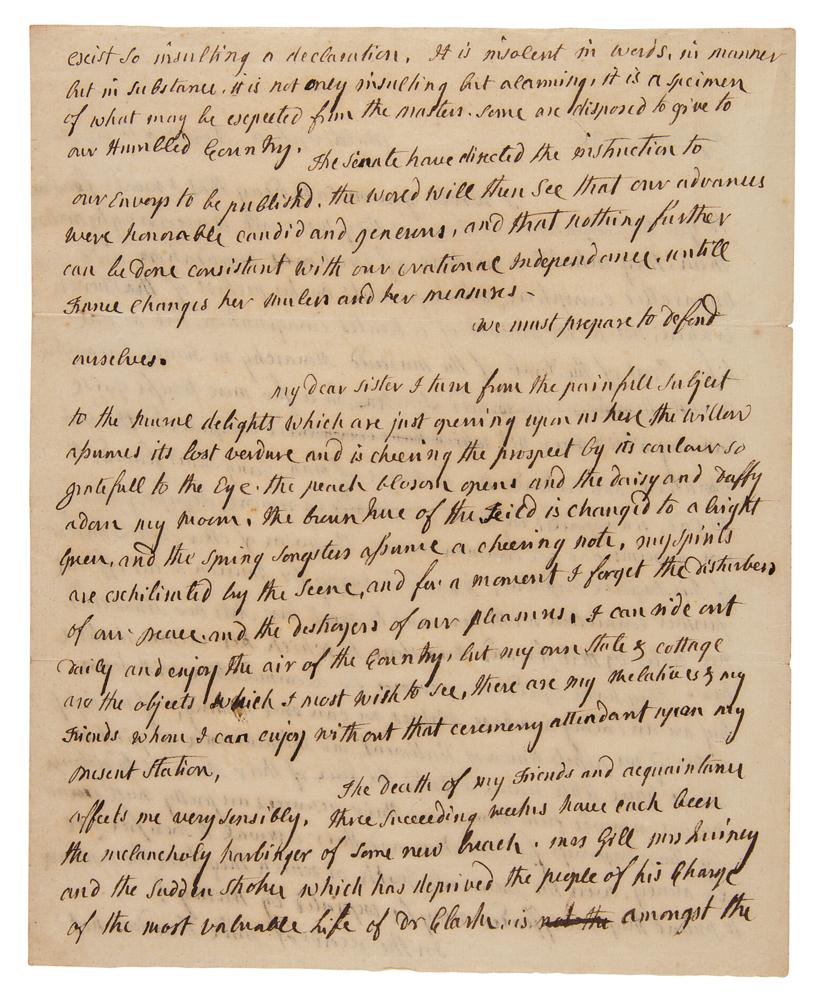 exist so insulting a declaration. It is insolent in words, in manner
but in substance. it is not only insulting but alarming, it is a specimen
of what may be expected from the masters. some are disposed to give to
our Humbled Country.
The Senate have directed the instruction to
our Envoys to be publishd. the world will then see that our advances
were honorable candid and generous, and that nothing further
can be done consistant with our national Independance. untill
France changes her rulers and her measures -
we must prepare to defend
ourselves.
my dear sister I turn from the painfull subject
to the Rural delights which are just opening upon us here the willow
assumes its lost verdure and is cheering the prospect by its coulour so
gratefull to the Eye. the peach blosom opens and the daisy and Daffy
adorn my room. the brown hue of the Feild is changed to a bright
Green, and the spring songsters assume a cheering note, my spirits
are exhilirated by the scene, and for a moment I forget the disturbers
of our peace. and the destroyers of our pleasures, I can ride out
daily and enjoy the air of the Country, but my own state & cottage
are the objects which I most wish to see, there are my relatives & my
Friends whom I can enjoy without that ceremony attendant upon my
present station,
The death of my Friends and acquaintance
affects me very sensibly. three succeeding weeks have each been
the melancholy harbinger of some new breach. mrs Gill mrs Quincy
and the sudden stroke which has deprived the people of his Charge
of the most valuable Life of Dr Clark. is not the amongst the